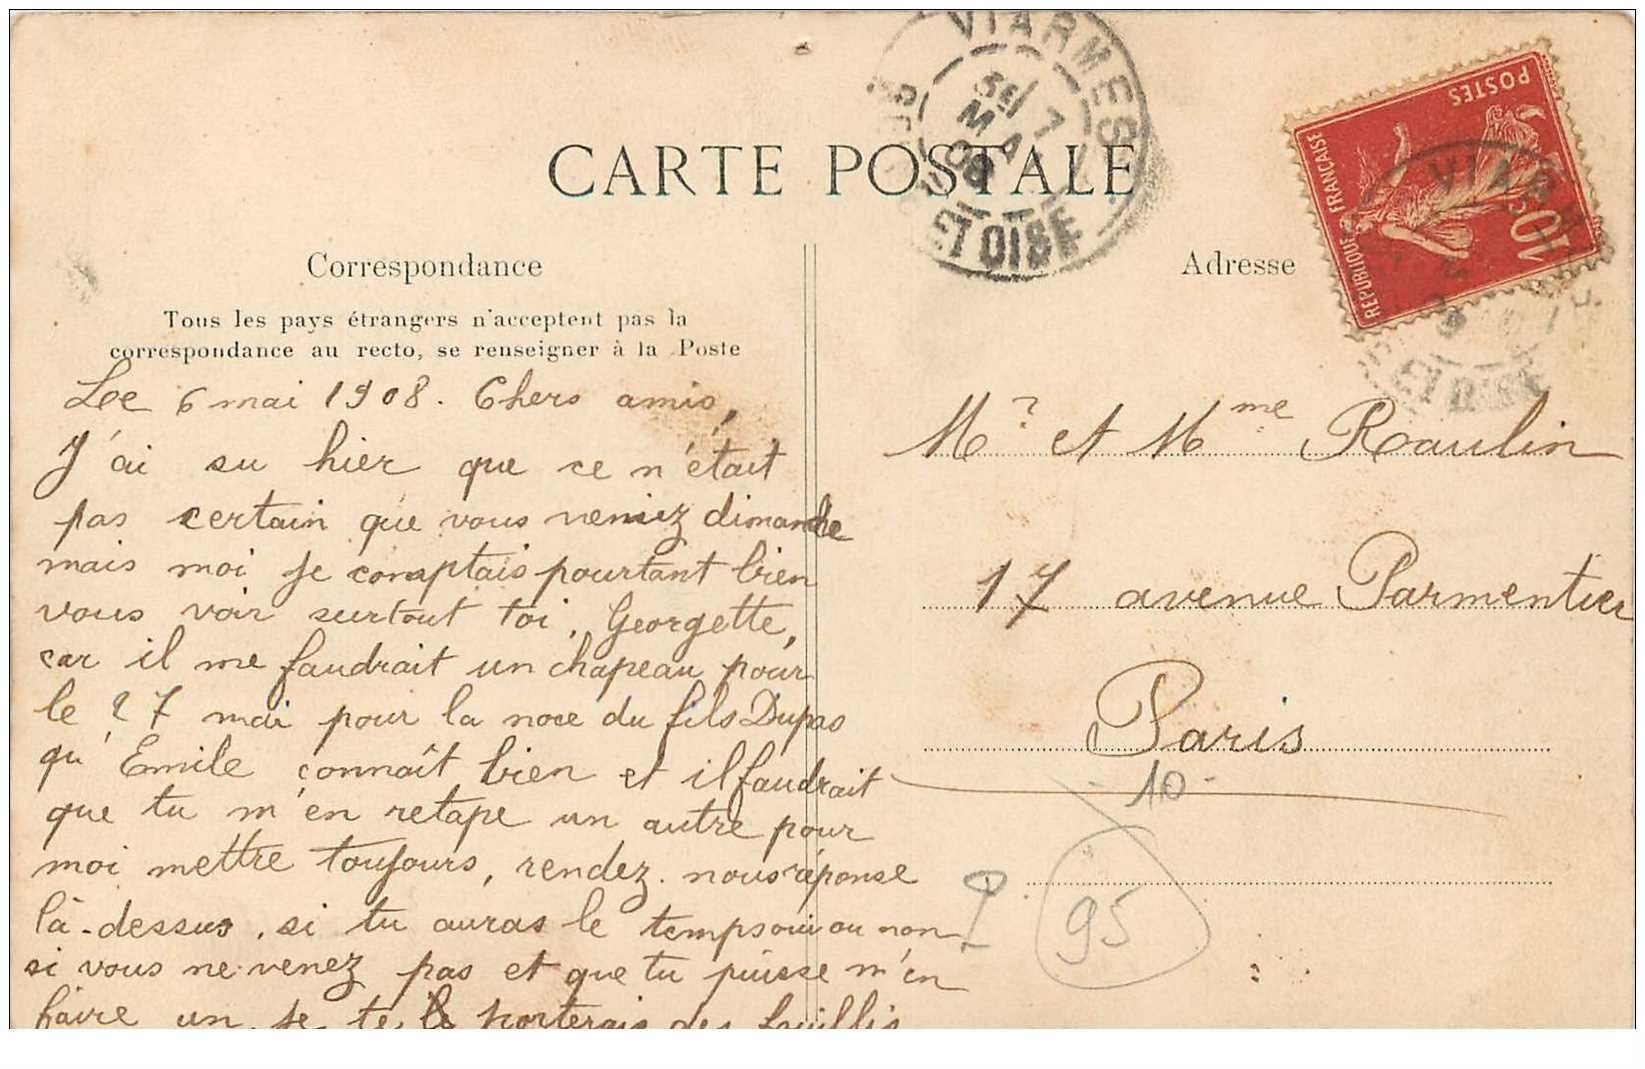 VIARMES
5E/ 7
MAI
08
SEINE ET OISE
POSTES
REPUBLIQUE FRANÇAISE
10c
VIARM
ET OISE
CARTE POSTALE
Correspondance
Tous les pays étrangers n'acceptent pas la
correspondance au recto, se renseigner à la Poste
Le 6 mai 1908. Chers amis,
J'ai su hier que ce n'était
pas certain que vous veniez dimanche
mais moi je comptais pourtant bien
vous voir surtout toi, Georgette,
car il me faudrait un chapeau pour
le 27 mai pour la noce du fils Dupas
qu'Emile connaît bien et il faudrait
que tu m'en retape un autre pour
moi mettre toujours, rendez-nous réponse
là-dessus, si tu auras le temps oui ou non
si vous ne venez pas et que tu puisse m'en
faire un je te le porterais des
Adresse
Mr et Mme Raulin
17 avenue Parmentier
Paris
-10-
95